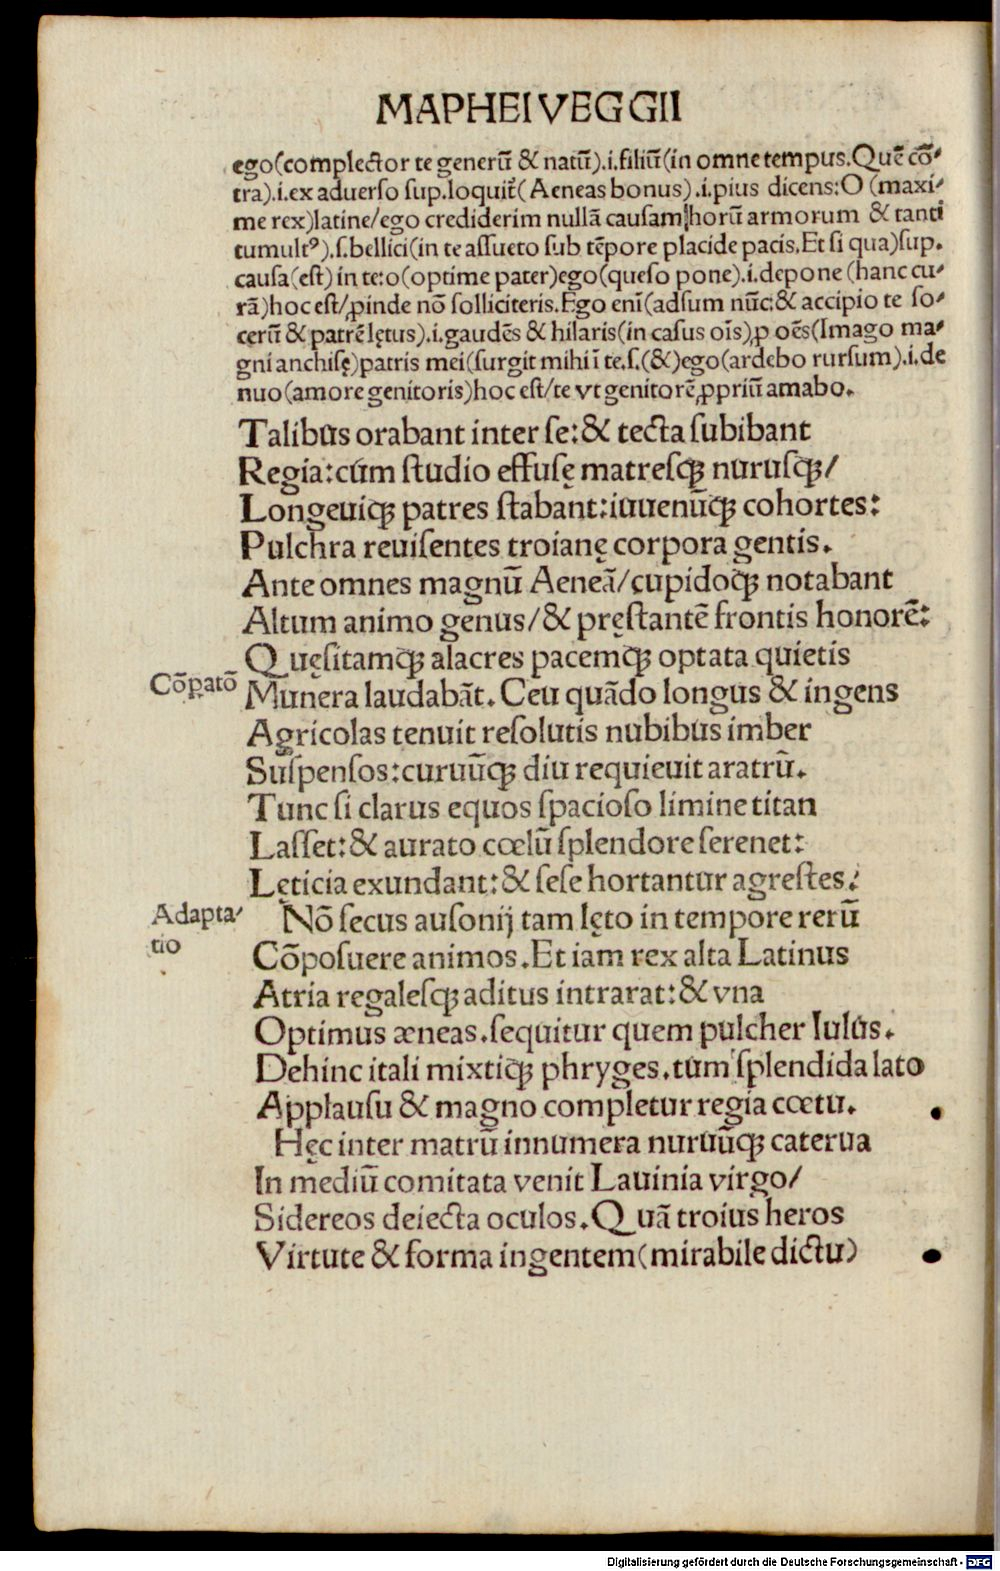 MAPHEI VEGGII
ego(complector te generū & natū).i.filiū(in omne tempus.Quē cō⸗
tra).i.ex aduerso sup.loquit̃(Aeneas bonus).i.pius dicens:O (maxi⸗
me rex)latine/ego crediderim nullā causam horū armorum & tanti
tumultꝰ).ſ.bellici(in te aſſueto ſub tēpore placide pacis.Et ſi qua)ſup.
cauſa(eſt) in te:o(optime pater)ego(queſo pone).i.depone (hanc cu⸗
rā)hoc eſt/ꝓinde nō ſolliciteris.Ego enī(adſum nūc:& accipio te ſo⸗
cerū & patrē lętus).i.gaudēs & hilaris(in caſus oīs)ꝑ oēs(Imago ma⸗
gni anchiſę)patris mei(ſurgit mihi ī te.ſ.(&)ego(ardebo rurſum).i.de
nuo(amore genitoris)hoc eſt/te vt genitorē ꝓpriū amabo.
Talibus orabant inter ſe:& tecta ſubibant
Regia:cum ſtudio effuſę matreſqꝫ nuruſqꝫ/
Longeuiqꝫ patres ſtabant:iuuenūqꝫ cohortes:
Pulchra reuiſentes troianę corpora gentis.
Ante omnes magnū Aeneā/cupidoqꝫ notabant
Altum animo genus/& pręſtantē frontis honorē:
Quęſitamqꝫ alacres pacemqꝫ optata quietis
Cōpatō
Munera laudabāt.Ceu quādo longus & ingens
Agricolas tenuit reſolutis nubibus imber
Suſpenſos:curuūqꝫ diu requieuit aratrū.
Tunc ſi clarus equos ſpacioſo limine titan
Laſſet:& aurato cœlū ſplendore ſerenet:
Lęticia exundant:& ſeſe hortantur agreſtes:
Adapta⸗
tio
Nō ſecus auſonij tam lęto in tempore rerū
Cōpoſuere animos.Et iam rex alta Latinus
Atria regaleſqꝫ aditus intrarat:& vna
Optimus æneas.ſequitur quem pulcher Iulus.
Dehinc itali mixtiqꝫ phryges.tum ſplendida lato
Applauſu & magno completur regia cœtu.
Hęc inter matrū innumera nuruūqꝫ caterua
In mediū comitata venit Lauinia virgo/
Sidereos deiecta oculos.Quā troius heros
Virtute & forma ingentem(mirabile dictu)
Digitalisierung gefördert durch die Deutsche Forschungsgemeinschaft - DFG